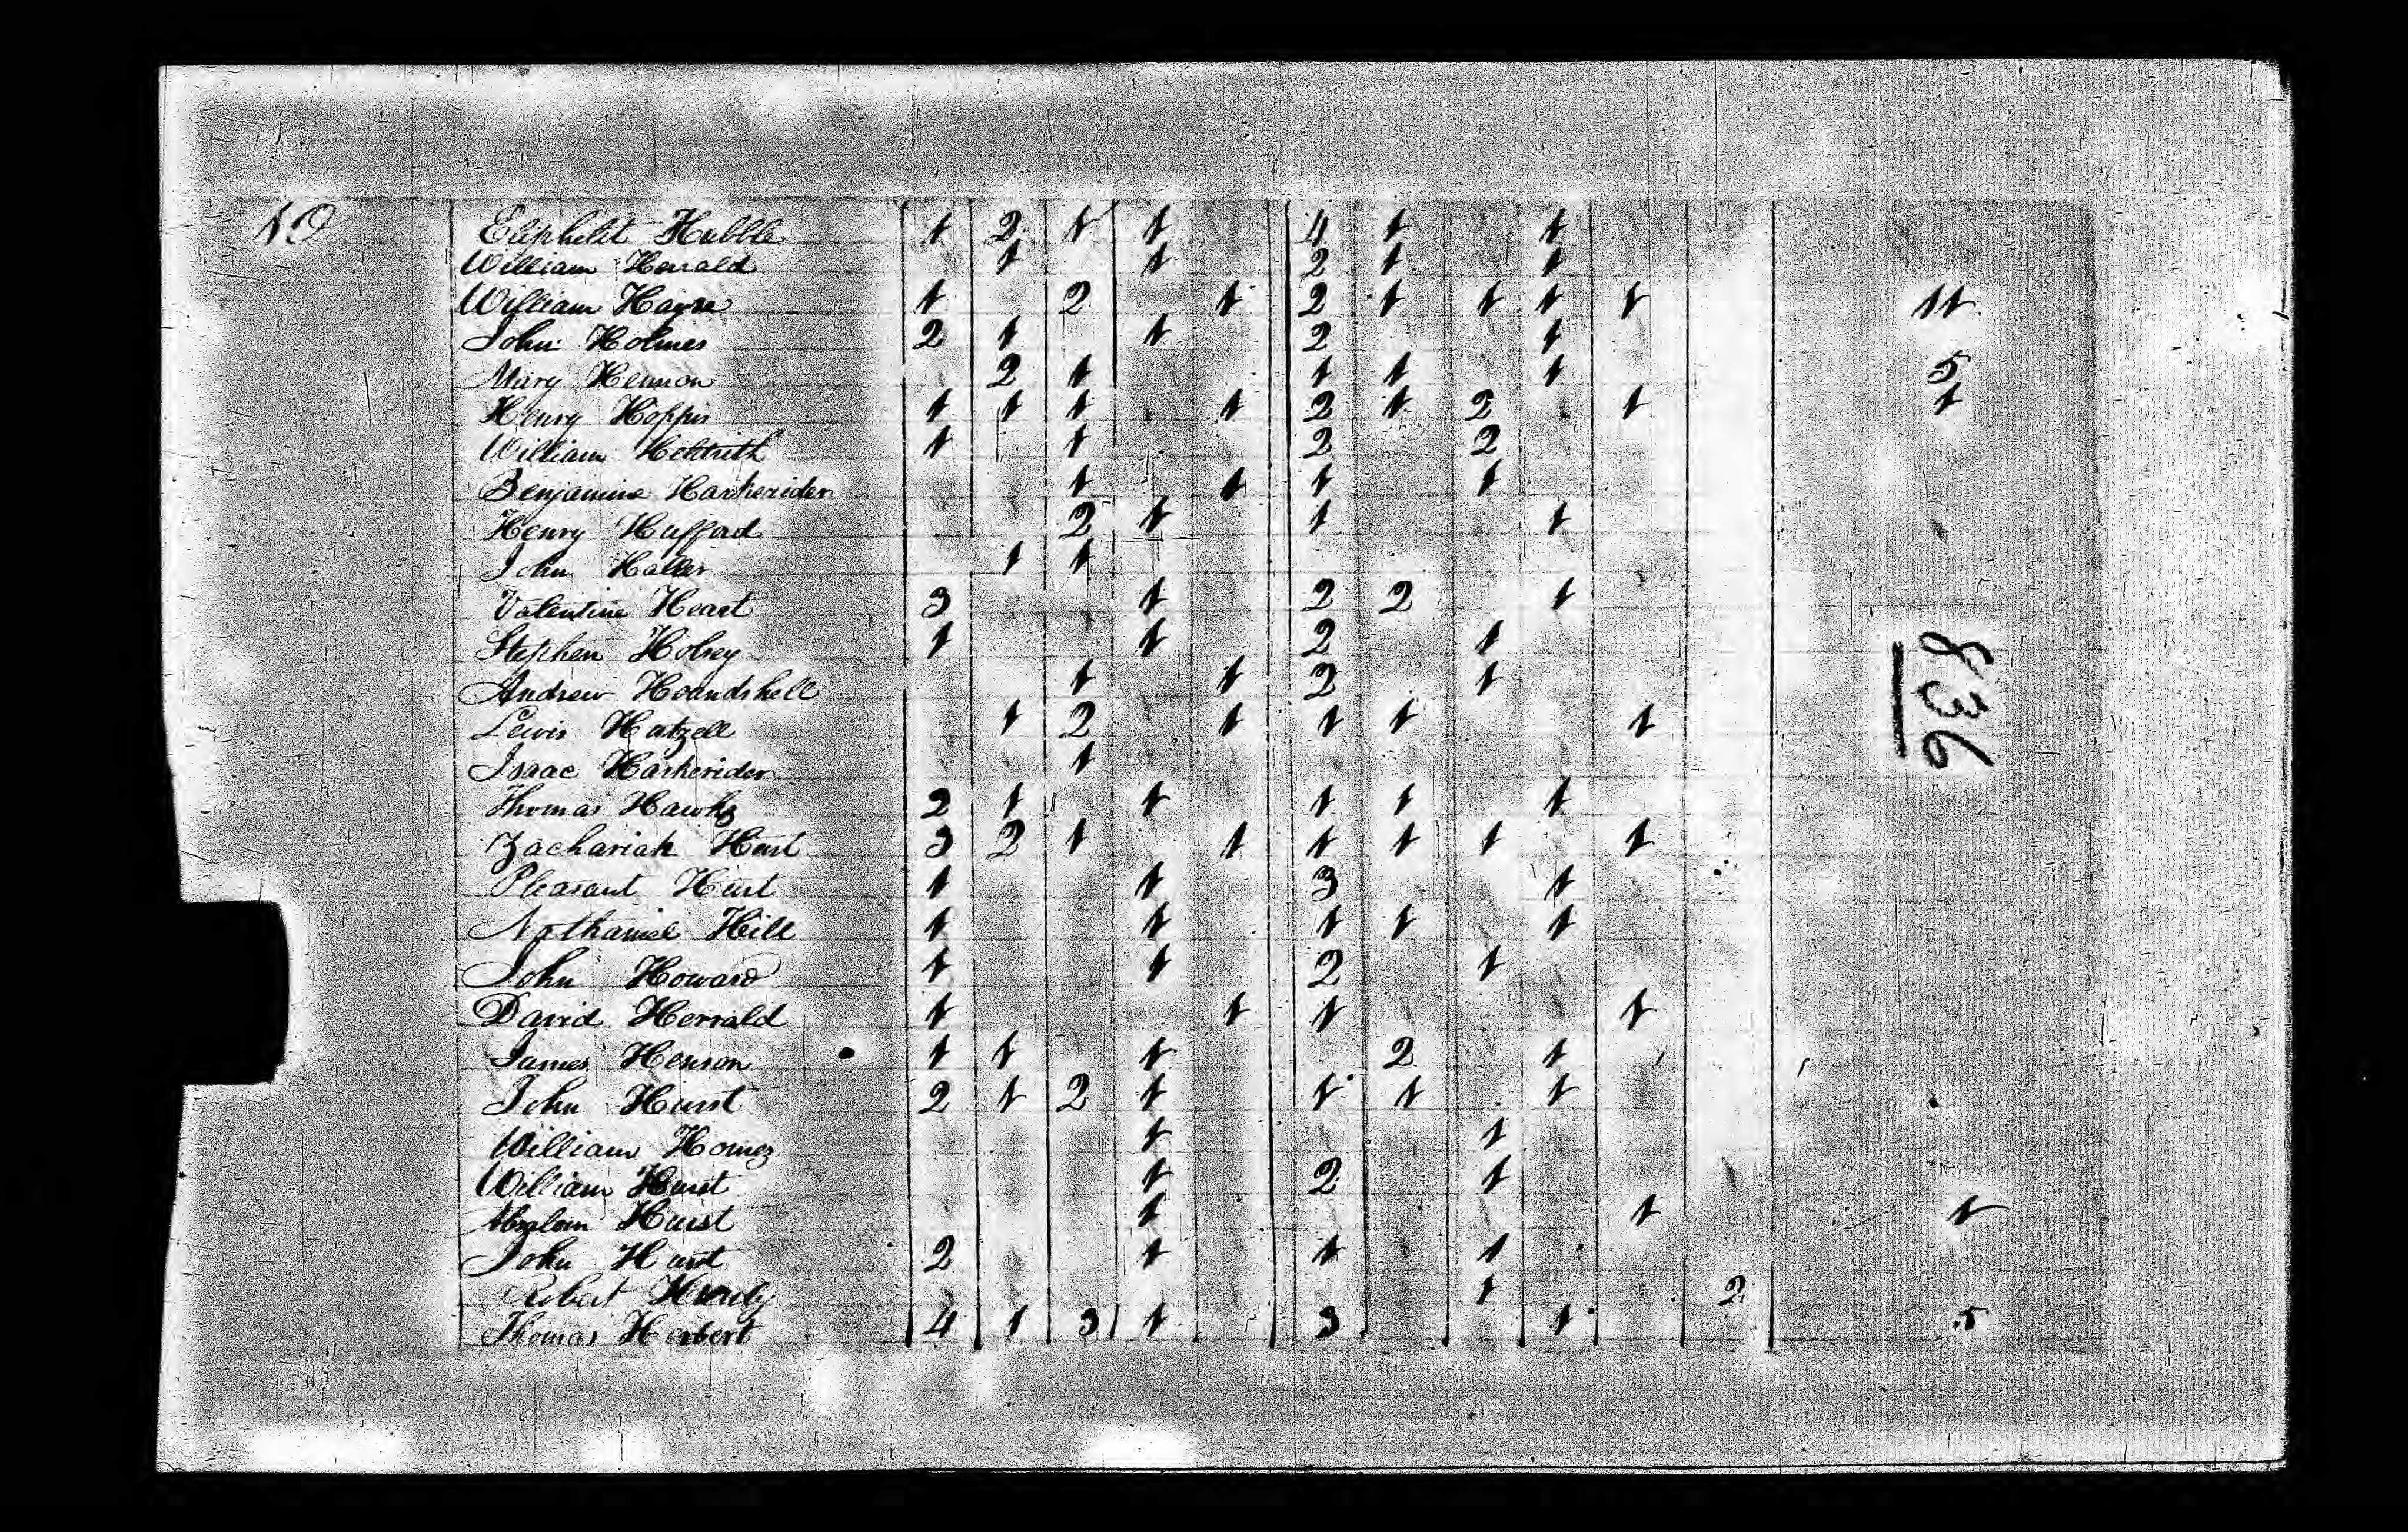 10
Eliphelit Hubble 1 2 1 1 4 1 1
William Herrald 1 1 2 1 1
William Hayse 1 2 1 2 1 1 1 1 11
John Holmes 2 1 1 2 1
Mary Hennon 2 1 1 1 1 5
Henry Hoppis 1 1 1 1 2 1 2 1 1
William 1 1 2 2
Benjamine Harkerider 1 1 1 1
Henry Hufford 2 1 1 1
John Haller 1 1
Valentine Heart 3 1 2 2 1
Stephen Holsey 1 1 2 1
Andrew Houndshell 1 1 2 1
Lewis Hutzell 1 2 1 1 1 1
Isaac Harkerider 1
Thomas Hawkz 2 1 1 1 1 1
Zachariah Hurt 3 2 1 1 1 1 1 1
Pleasant Hurt 1 1 3 1
Nathaniel Hill 1 1 1 1 1
John Howard 1 1 2 1
David Herrald 1 1 1 1
James Henson 1 1 1 2 1
John Hurst 2 1 2 1 1 1 1
William Homez 1 1
William Hurst 1 2 1
Absalom Hurst 1 1 1
John Hurt 2 1 1 1
Robert 1 2
Thomas Herbert 4 1 3 1 3 1 5
836